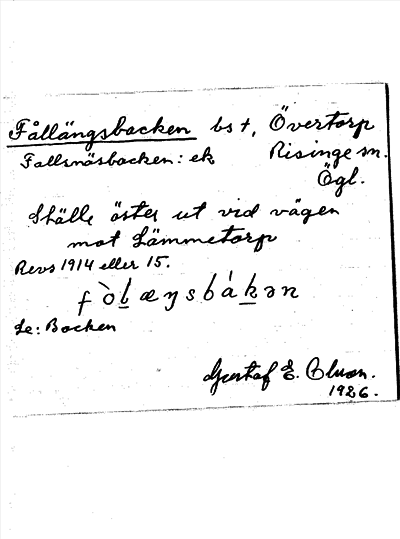 Fållängsbacken bst, Övertorp
Fallsnäsbacken: ek Risinge sn.
Ögl.
Ställe öster ut vid vägen
mot Lämmetorp
Revs 1914 eller 15.
f ò l æ ŋ s b á k ə n
Se: Backen
Gustaf E. Olson.
1926.